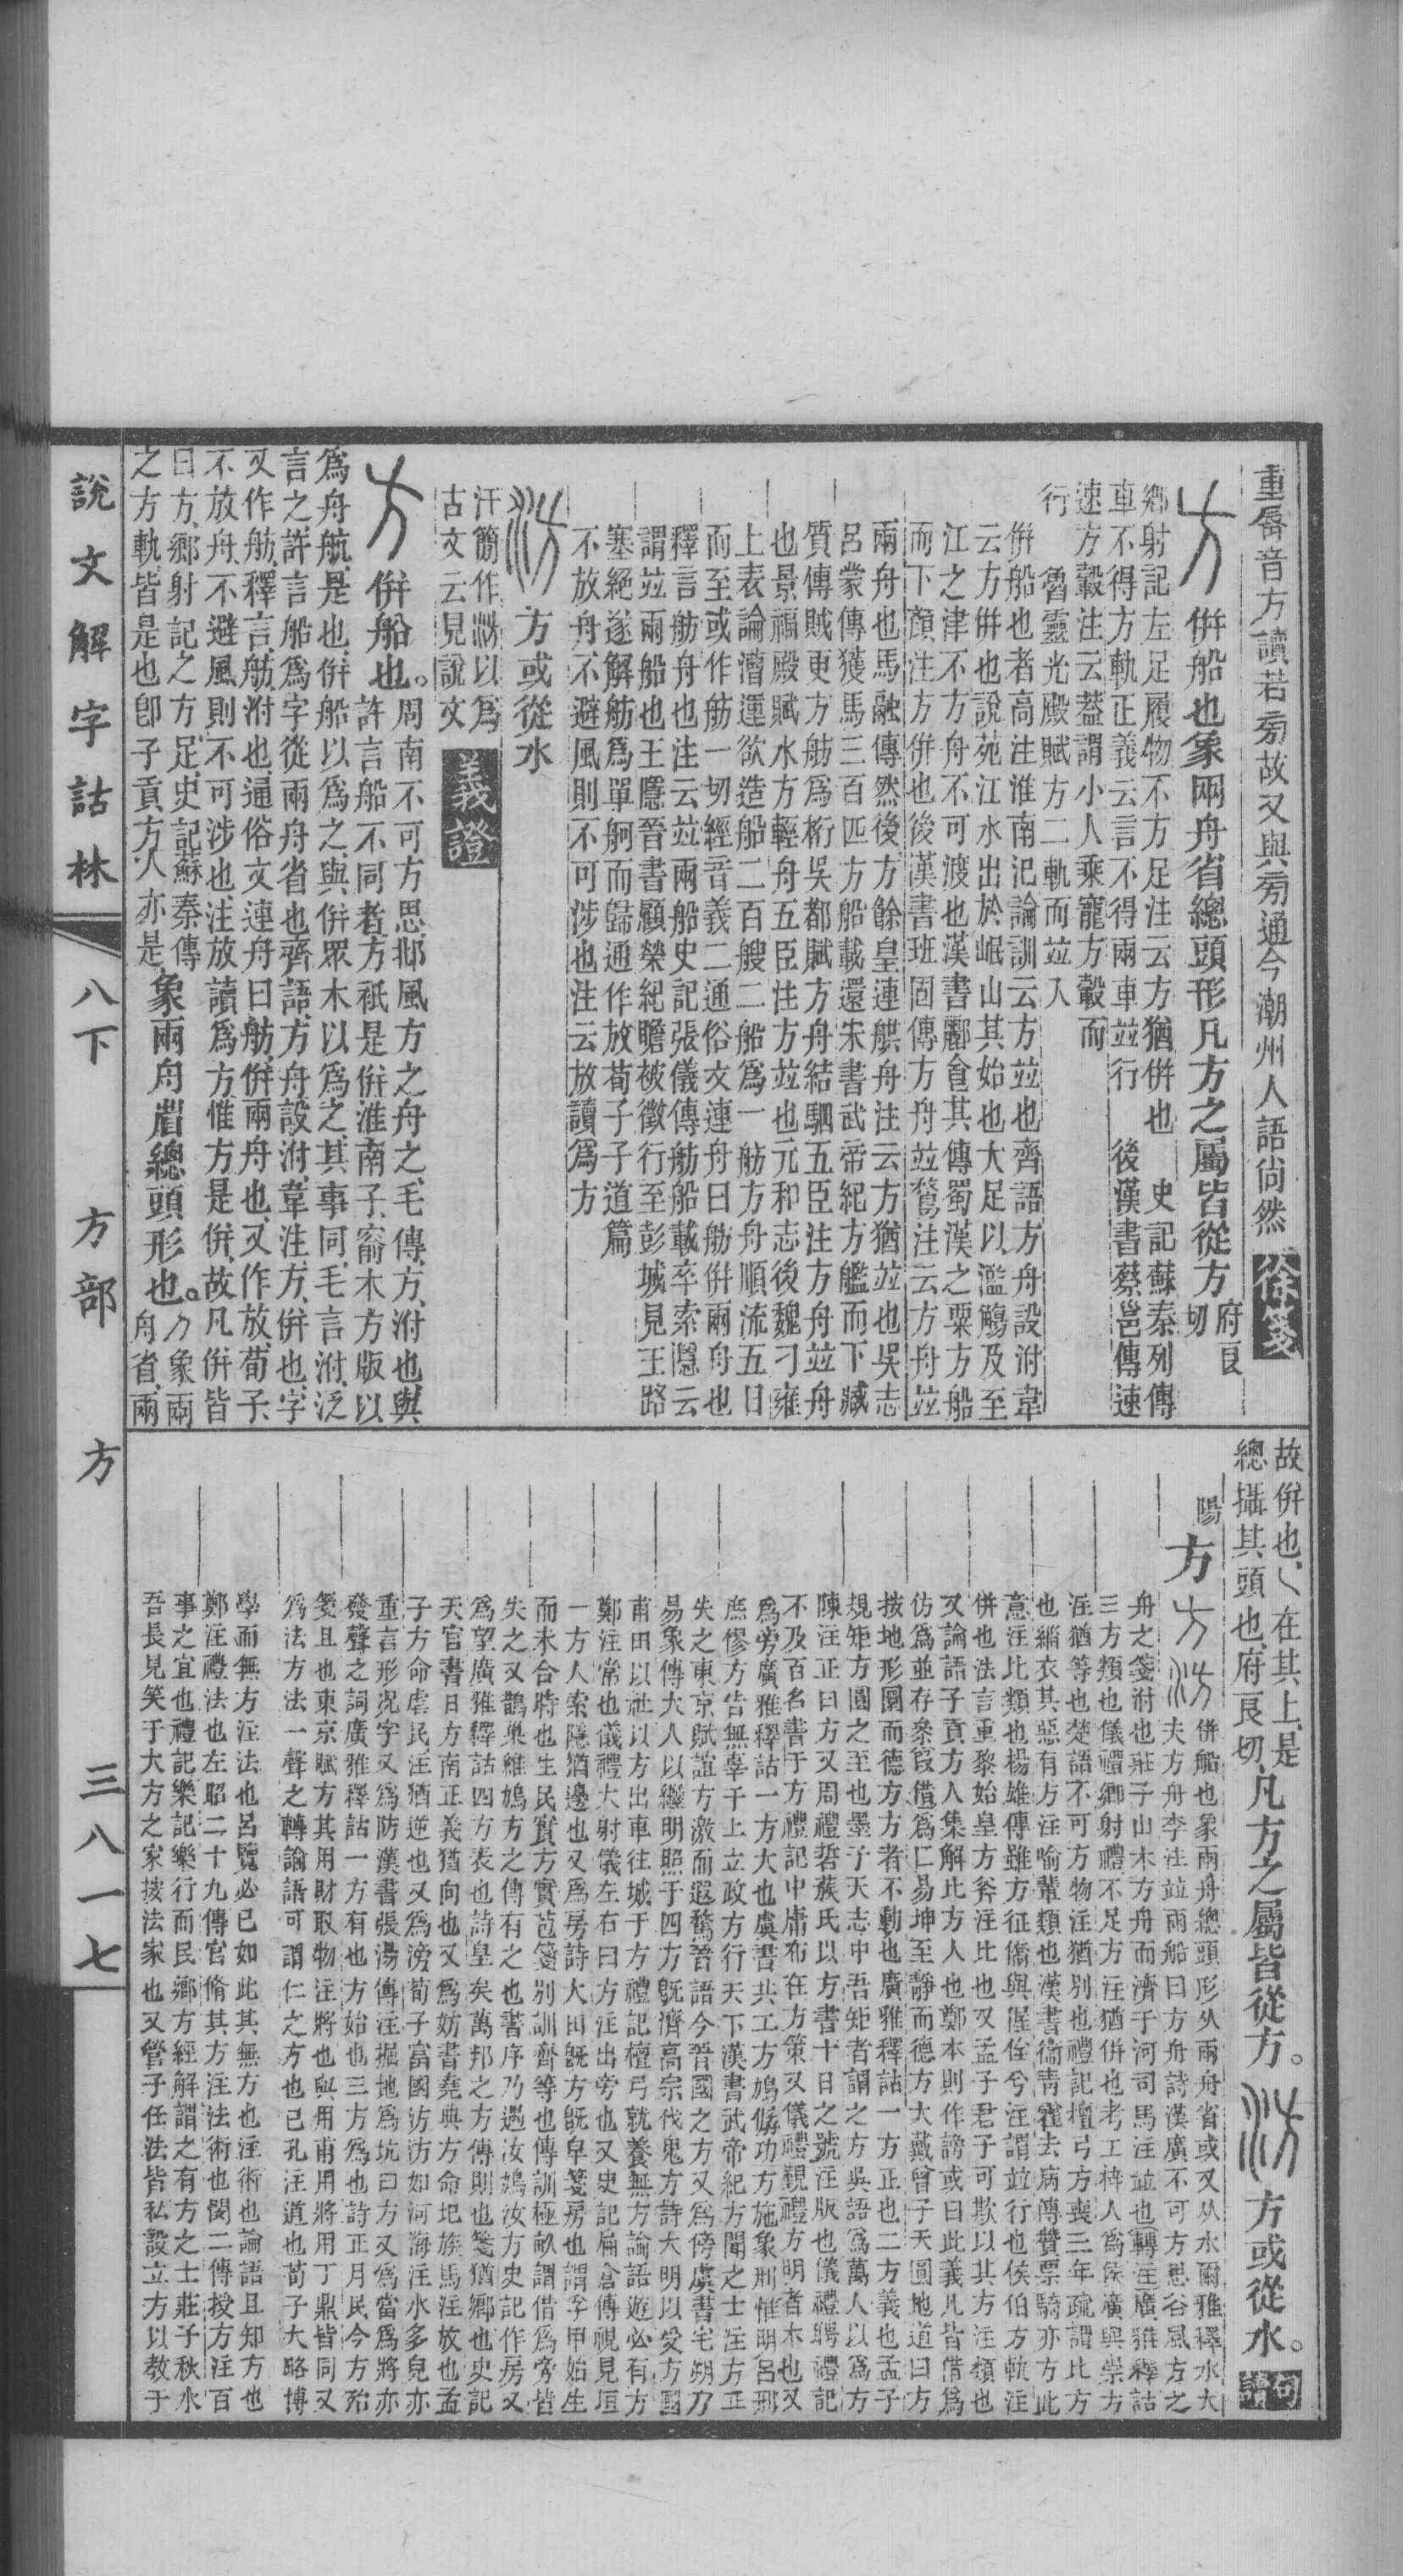 重脣音方讀若旁故又與旁通今潮州人語尙然 徐箋
方 倂船也象兩舟省總頭形凡方之屬皆從方 府良切
鄉射記左足履物不方足注云方猶倂也 史記蘇秦列傳
車不得方軌正義云言不得兩車竝行 後漢書蔡邕傳速
速方轂注云葢謂小人乘寵方轂而
行 魯靈光殿賦方二軌而竝入
倂船也者高注淮南氾論訓云方竝也齊語方舟設泭韋
云方倂也說苑江水出於岷山其始也大足以濫觴及至
江之津不方舟不可渡也漢書酈食其傳蜀漢之粟方船
而下顏注方倂也後漢書班固傳方舟竝騖注云方舟竝
兩舟也馬融傳然後方餘皇連舼舟注云方猶竝也吳志
呂蒙傳獲馬三百匹方船載還宋書武帝紀方艦而下臧
質傳賊更方舫爲桁吳都賦方舟結駟五臣注方舟竝舟
也景福殿賦水方輕舟五臣注方竝也元和志後魏刁雍
上表論漕運欲造船二百艘二船爲一舫方舟順流五日
而至或作舫一切經音義二通俗文連舟曰舫倂兩舟也
釋言舫舟也注云竝兩船史記張儀傳舫船載卒索隱云
謂竝兩船也王隱晉書顧榮紀瞻被徵行至彭城見王路
塞絕遂解舫爲單舸而歸通作放荀子子道篇
不放舟不避風則不可涉也注云放讀爲方
汸 方或從水
汗簡作汸以爲
古文云見說文 義證
方 倂船也。周南不可方思邶風方之舟之毛傳方泭也與
許言船不同者方祇是倂淮南子窬木方版以
爲舟航是也倂船以爲之與倂眾木以爲之其事同毛言泭泛
言之許言船爲字從兩舟省也齊語方舟設泭韋注方倂也字
又作舫釋言舫泭也通俗文連舟曰舫倂兩舟也又作放荀子
不放舟不避風則不可涉也注放讀爲方惟方是倂故凡倂皆
曰方鄉射記之方足史記蘇秦傳
之方軌皆是也卽子貢方人亦是 象兩舟省總頭形也。方象兩舟省兩
故倂也在其上是
總攝其頭也府良切 凡方之屬皆從方。汸 方或從水。句讀
陽 方 方 汸 倂船也象兩舟總頭形从兩舟省或又从水爾雅釋水大
夫方舟李注竝兩船曰方舟詩漢廣不可方思谷風方之
舟之箋泭也莊子山木方舟而濟于河司馬注竝也轉注廣雅釋詁
三方類也儀禮鄉射禮不足方注猶倂也考工梓人爲侯廣與崇方
注猶等也楚語不可方物注猶別也禮記檀弓方喪三年疏謂比方
也緇衣其惡有方注喻輩類也漢書衞靑霍去病傳贊票騎亦方此
意注比類也揚雄傳雖方征僑與偓佺兮注謂竝行也侯伯方軌注
倂也法言重黎始皇方斧注比也又孟子君子可欺以其方注類也
又論語子貢方人集解比方人也鄭本則作謗或曰此義凡皆借爲
仿爲並存參叚借爲匚易坤至靜而德方大戴曾子天圓地道曰方
按地形圓而德方方者不動也廣雅釋詁一方正也二方義也孟子
規矩方圓之至也墨子天志中吾矩者謂之方吳語爲萬人以爲方
陳注正曰方又周禮硩蔟氏以方書十日之號注版也儀禮聘禮記
不及百名書于方禮記中庸布在方策又儀禮覲禮方明者木也又
爲旁廣雅釋詁一方大也虞書共工方鳩僝功方施象刑惟明呂刑
庶僇方告無辜于上立政方行天下漢書武帝紀方聞之士注方正
失之東京賦誼方激而遐騖晉語今晉國之方又爲傍虞書宅朔方
易象傳大人以繼明照于四方旣濟高宗伐鬼方詩大明以受方國
甫田以社以方出車往城于方禮記檀弓就養無方論語遊必有方
鄭注常也儀禮大射儀左右曰方注出旁也又史記扁倉傳視見垣
一方人索隱猶邊也又爲房詩大田旣方旣皁箋房也謂孚甲始生
而未合時也生民實方實苞箋別訓齊等也傳訓極畝謂借爲旁皆
失之又鵲巢維鳩方之傳有之也書序乃遇汝鳩汝方史記作房又
爲望廣雅釋詁四方表也詩皇矣萬邦之方傳則也箋猶鄉也史記
天官書日方南正義猶向也又爲妨書堯典方命圮族馬注放也孟
子方命虐民注猶逆也又爲滂荀子富國汸汸如河海注水多皃亦
重言形况字又爲防漢書張湯傳注掘地爲坑曰方又爲當爲將亦
發聲之詞廣雅釋詁一方有也方始也三方爲也詩正月民今方殆
箋且也東京賦方其用財取物注將也與用甫用將用丁鼎皆同又
爲法方法一聲之轉論語可謂仁之方也已孔注道也荀子大略博
學而無方注法也呂覽必已如此其無方也注術也論語且知方也
鄭注禮法也左昭二十九傳官脩其方注法術也閔二傳授方注百
事之宜也禮記樂記樂行而民鄉方經解謂之有方之士莊子秋水
吾長見笑于大方之家按法家也又管子任法皆私設立方以敎于
說文解字詁林 八下 方部 方 三八一七